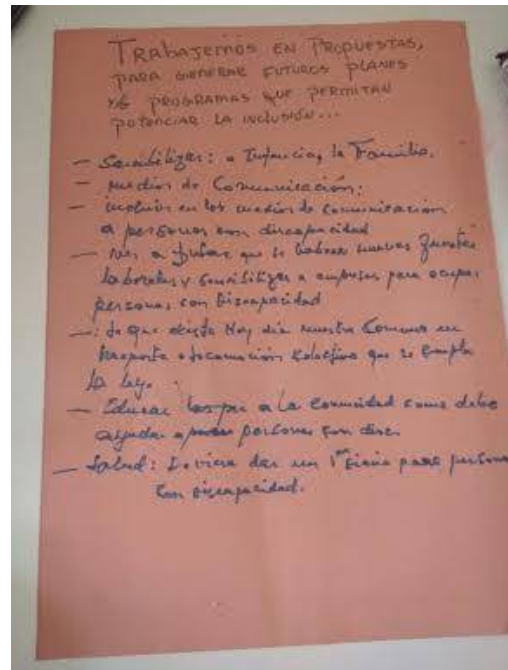 TRABAJEMOS EN PROPUESTAS,
PARA GENERAR FUTUROS PLANES
Y/O PROGRAMAS QUE PERMITAN
POTENCIAR LA INCLUSIÓN...
- Sensibilizar: a Infancia, la Familia.
- Medios de Comunicación:
- incluir en los medios de comunicación
a personas con discapacidad
- que se nuevas fuentes
laborales y sensibilizar a empresas para ocupar
personas con Discapacidad
- : Lo que exista Hoy día nuestra Comuna en
Transporte o locomoción colectiva que se cumpla
la ley.
- Educar a la comunidad como debe
ayudar a personas con disc.
- Salud: dar un para personas
con discapacidad.